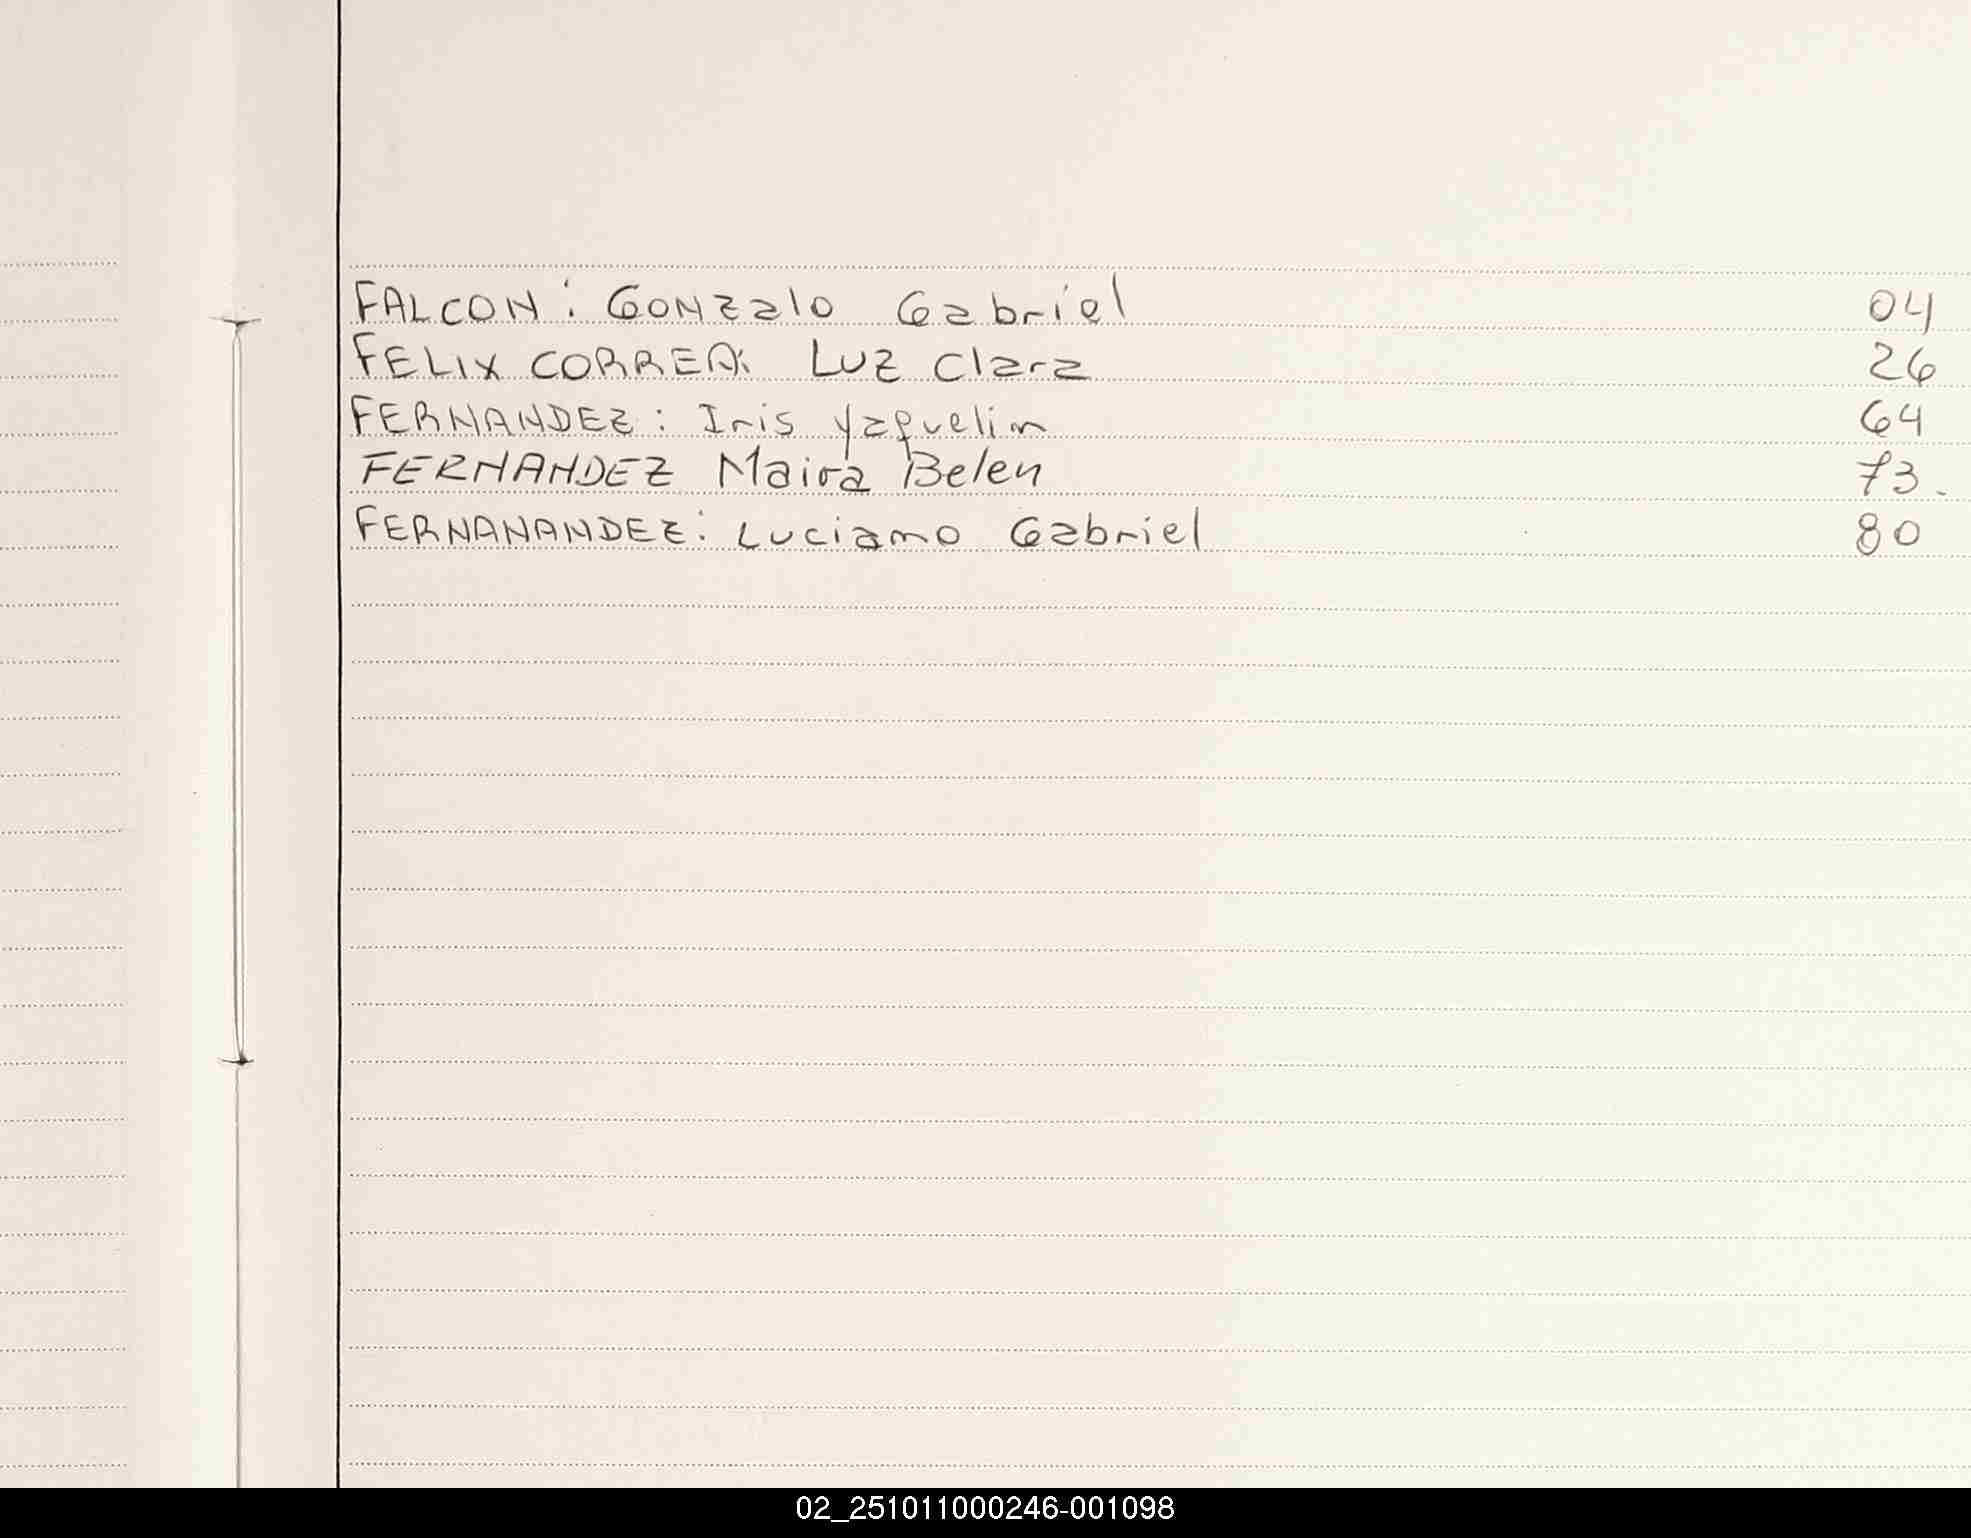 FALCON: Gonzalo Gabriel 04
FELIX CORREA: Luz Clara 26
FERNANDEZ: Iris Yaquelin 64
FERNANDEZ Maira Belen 73.
FERNANANDEZ: Luciano Gabriel 80
02_251011000246-001098